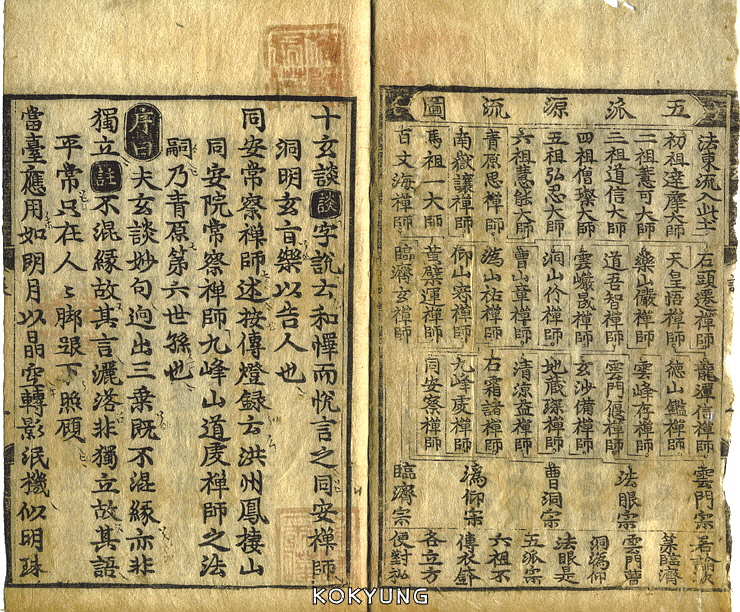 五派源流圖
法東流入此土
初祖達磨大師
二祖慧可大師
三祖道信大師
四祖僧璨大師
五祖弘忍大師
六祖慧能大師
青原思禪師
南嶽讓禪師
馬祖一大師
百丈海禪師
石頭遷禪師
天皇悟禪師
藥山儼禪師
道吾智禪師
雲巖晟禪師
洞山价禪師
曹山章禪師
溈山祐禪師
仰山寂禪師
黃檗運禪師
臨濟玄禪師
龍潭信禪師
德山鑑禪師
雪峰存禪師
雲門偃禪師
玄沙備禪師
地藏琛禪師
清涼益禪師
石霜諸禪師
九峰虔禪師
同安察禪師
雲門宗
法眼宗
曹洞宗
溈仰宗
臨濟宗
若論次
第臨濟
雲門曹
洞溈仰
法眼是
五派宗
六祖不
傳衣鉢
各立方
便對弘
十玄談談字說云和懌而悅言之同安禪師
洞明玄旨樂以告人也
同安常察禪師述按傳燈録云洪州鳳棲山
同安院常察禪師九峰山道虔禪師之法
嗣乃青原第六世孫也
序曰夫玄談妙句逈出三乘既不混緣亦非
獨立註不混緣故其言灑落非獨立故其語
平常只在人〻脚跟下照顧
當臺應用如朗月以晶空轉影泯機似明珠
KOKYUNG